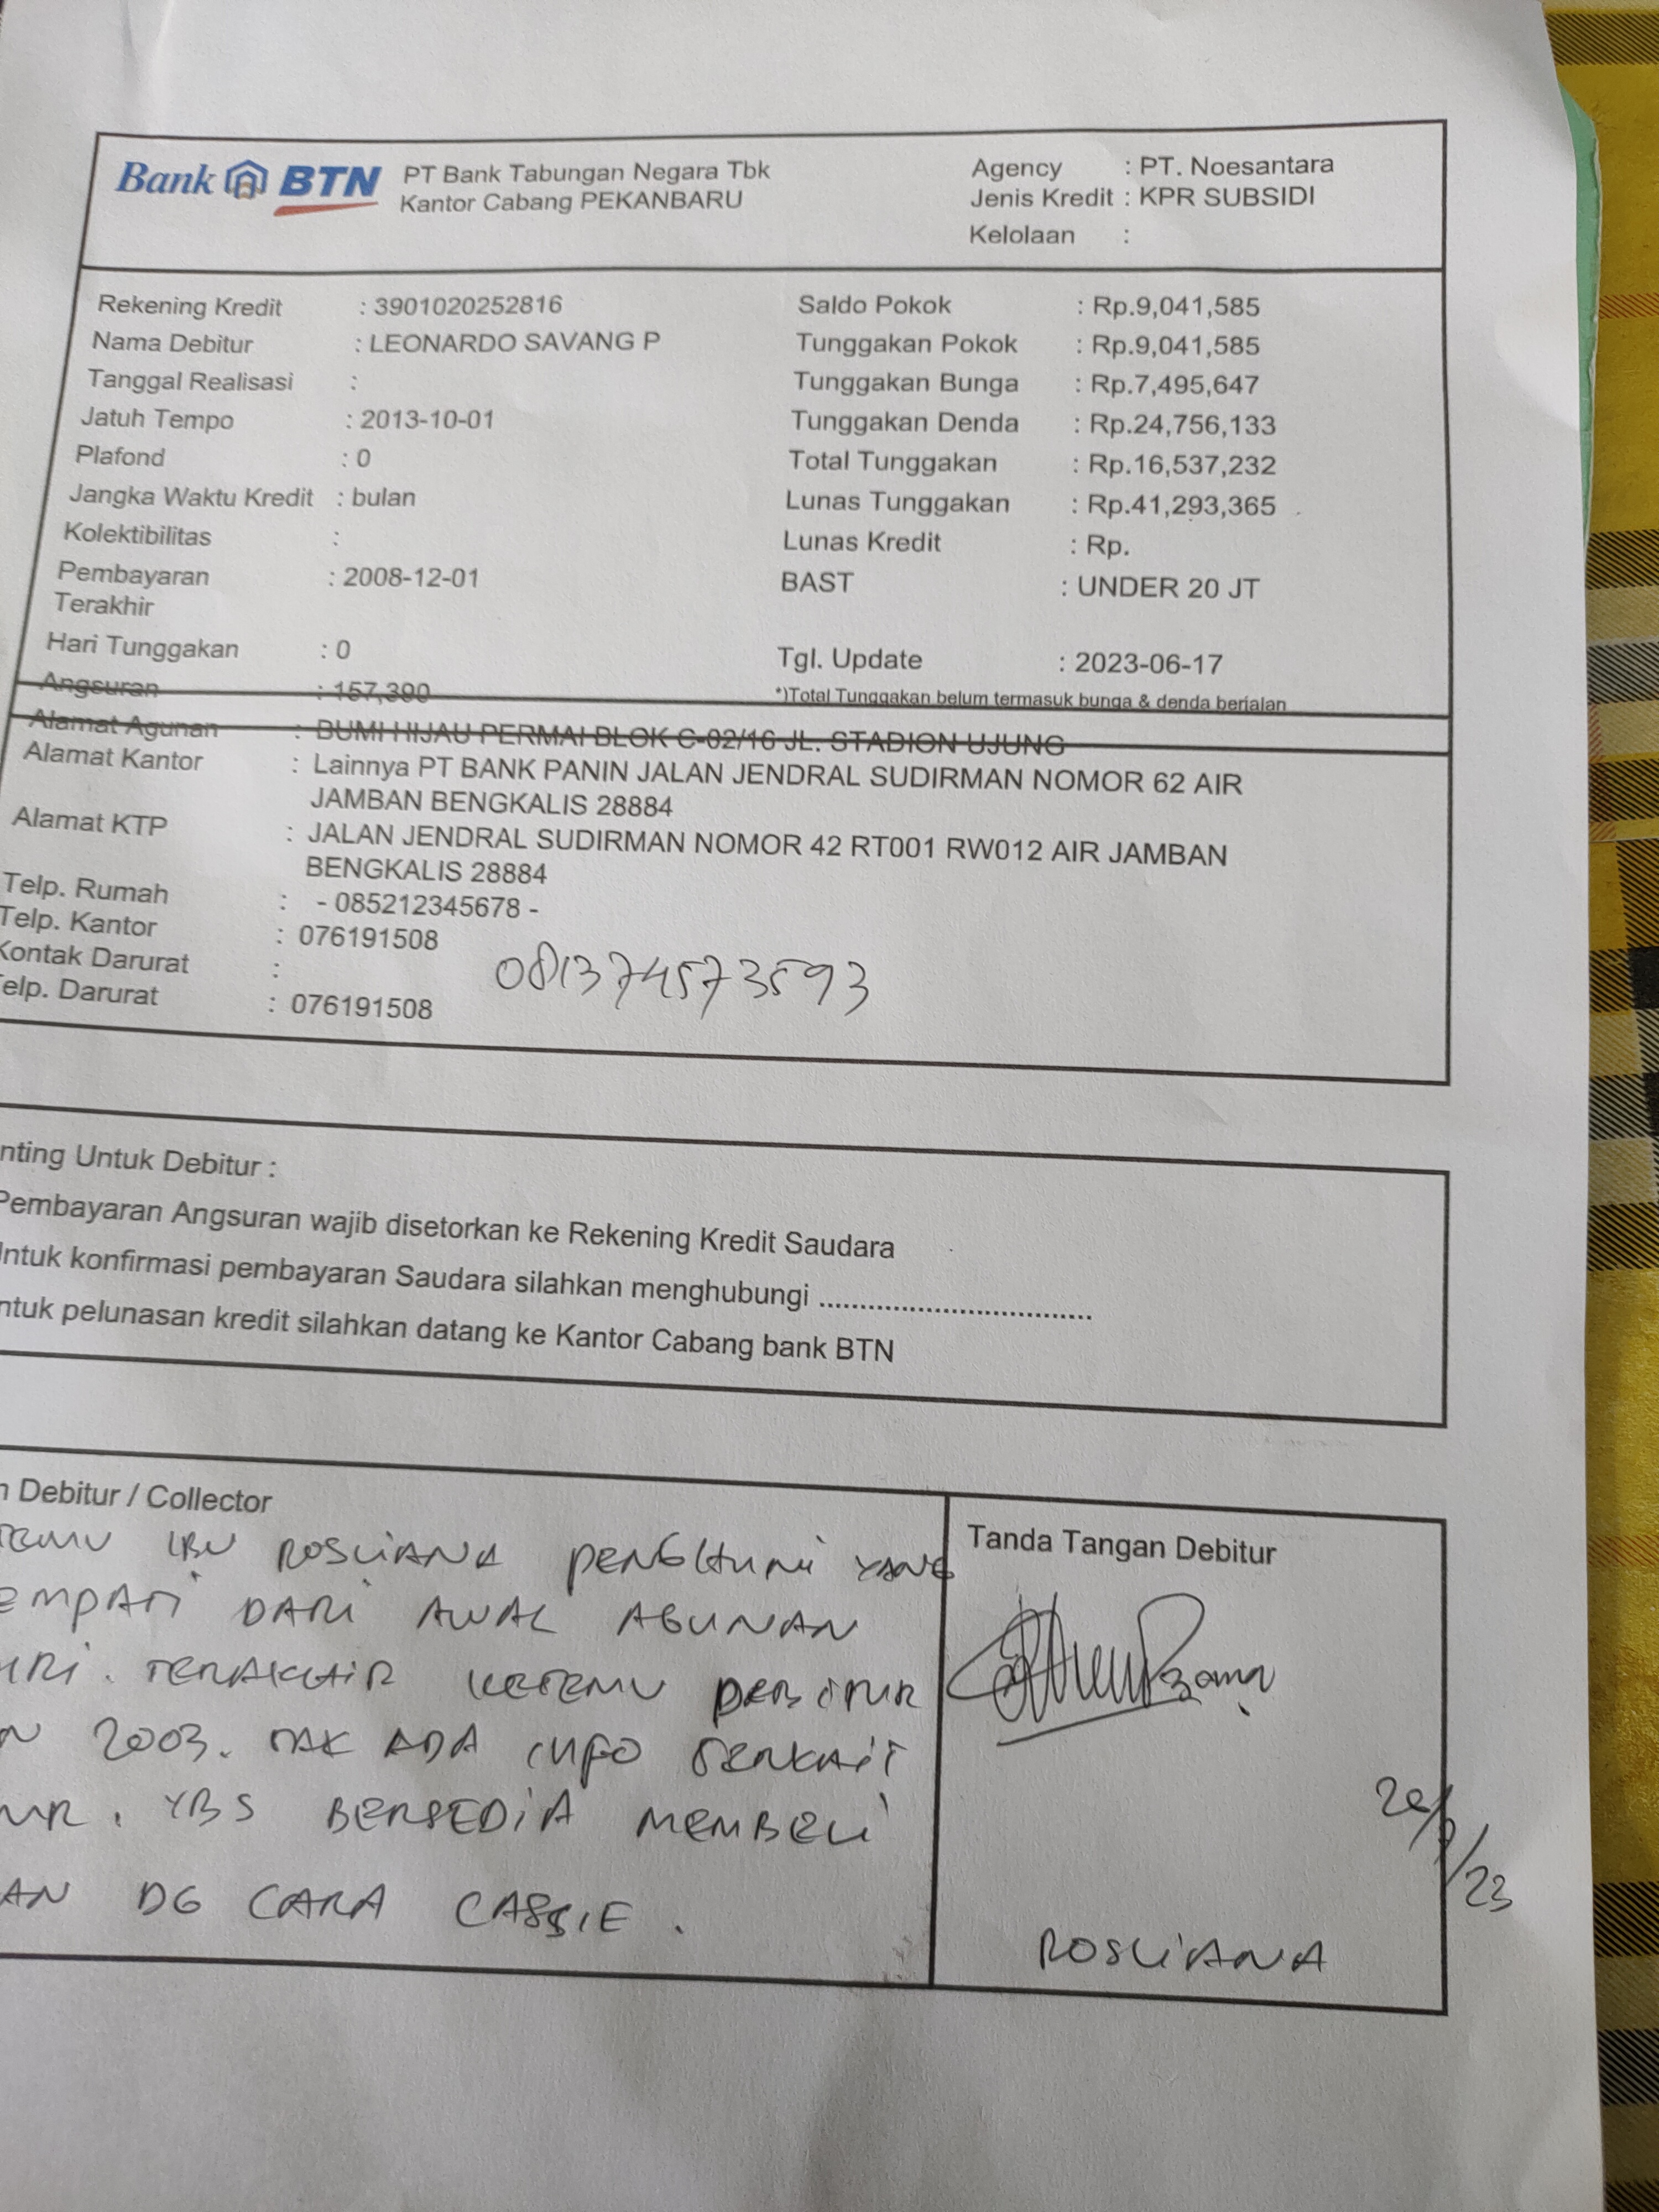 Bank BTN PT Bank Tabungan Negara Tbk
Kantor Cabang PEKANBARU
Agency : PT. Noesantara
Jenis Kredit : KPR SUBSIDI
Kelolaan :
Rekening Kredit : 3901020252816
Nama Debitur : LEONARDO SAVANG P
Tanggal Realisasi :
Jatuh Tempo : 2013-10-01
Plafond : 0
Jangka Waktu Kredit : bulan
Kolektibilitas :
Pembayaran : 2008-12-01
Terakhir
Hari Tunggakan : 0
Angsuran : 157,390
Saldo Pokok : Rp.9,041,585
Tunggakan Pokok : Rp.9,041,585
Tunggakan Bunga : Rp.7,495,647
Tunggakan Denda : Rp.24,756,133
Total Tunggakan : Rp.16,537,232
Lunas Tunggakan : Rp.41,293,365
Lunas Kredit : Rp.
BAST : UNDER 20 JT
Tgl. Update : 2023-06-17
*)Total Tunggakan belum termasuk bunga & denda berjalan
Alamat Agunan : BUMI HIJAU PERMAI BLOK C-02/16 JL. STADION UJUNG
Alamat Kantor : Lainnya PT BANK PANIN JALAN JENDRAL SUDIRMAN NOMOR 62 AIR
JAMBAN BENGKALIS 28884
Alamat KTP : JALAN JENDRAL SUDIRMAN NOMOR 42 RT001 RW012 AIR JAMBAN
BENGKALIS 28884
Telp. Rumah : - 085212345678 -
Telp. Kantor : 076191508
Kontak Darurat :
elp. Darurat : 076191508
081374573593
nting Untuk Debitur :
Pembayaran Angsuran wajib disetorkan ke Rekening Kredit Saudara
Untuk konfirmasi pembayaran Saudara silahkan menghubungi ..................................
ntuk pelunasan kredit silahkan datang ke Kantor Cabang bank BTN
n Debitur / Collector
TEMU IBU ROSLIANA PENGHUNI YANG
EMPATI DARI AWAL AGUNAN
HRI. TERAKHIR KETEMU DEBITUR
N 2003. TAK ADA INFO TERKAIT
UR. YBS BERSEDIA MEMBELI
AN DG CARA CASSIE.
Tanda Tangan Debitur
ROSLIANA